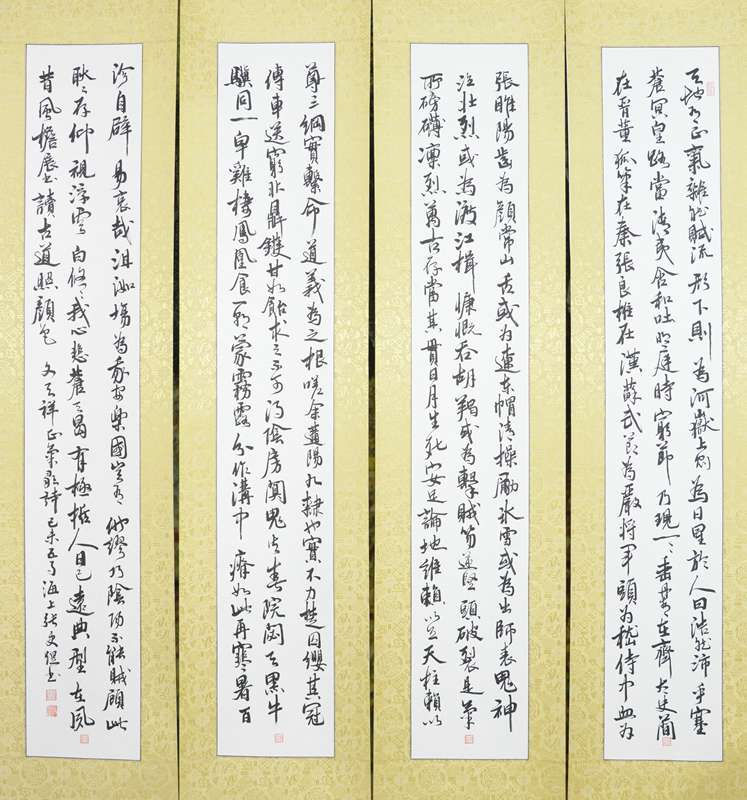 天地有正氣雜然賦流形下則為河嶽上則為日星於人曰浩然沛乎塞
蒼冥皇路當清夷含和吐明庭時窮節乃現一一垂丹青在齊太史簡
在晉董狐筆在秦張良椎在漢蘇武節為嚴將軍頭為嵇侍中血為
張睢陽齒為顏常山舌或為遼東帽清操勵冰雪或為出師表鬼神
泣壯烈或為渡江楫慷慨吞胡羯或為擊賊笏逆豎頭破裂是氣
所磅礴凜烈萬古存當其貫日月生死安足論地維賴以立天柱賴以
尊三綱實繫命道義為之根嗟余遘陽九隸也實不力楚囚纓其冠
傳車送窮北鼎鑊甘如飴求之不可得陰房闃鬼火春院閟天黑牛
驥同一皁雞棲鳳凰食一朝蒙霧露分作溝中瘠如此再寒暑百
沴自辟易哀哉沮洳場為我安樂國豈有他繆巧陰陽不能賊顧此
耿耿存仰視浮雲白悠悠我心悲蒼天曷有極哲人日已遠典型在夙
昔風檐展書讀古道照顏色 文天祥正氣歌詩 己未五月海上張文書